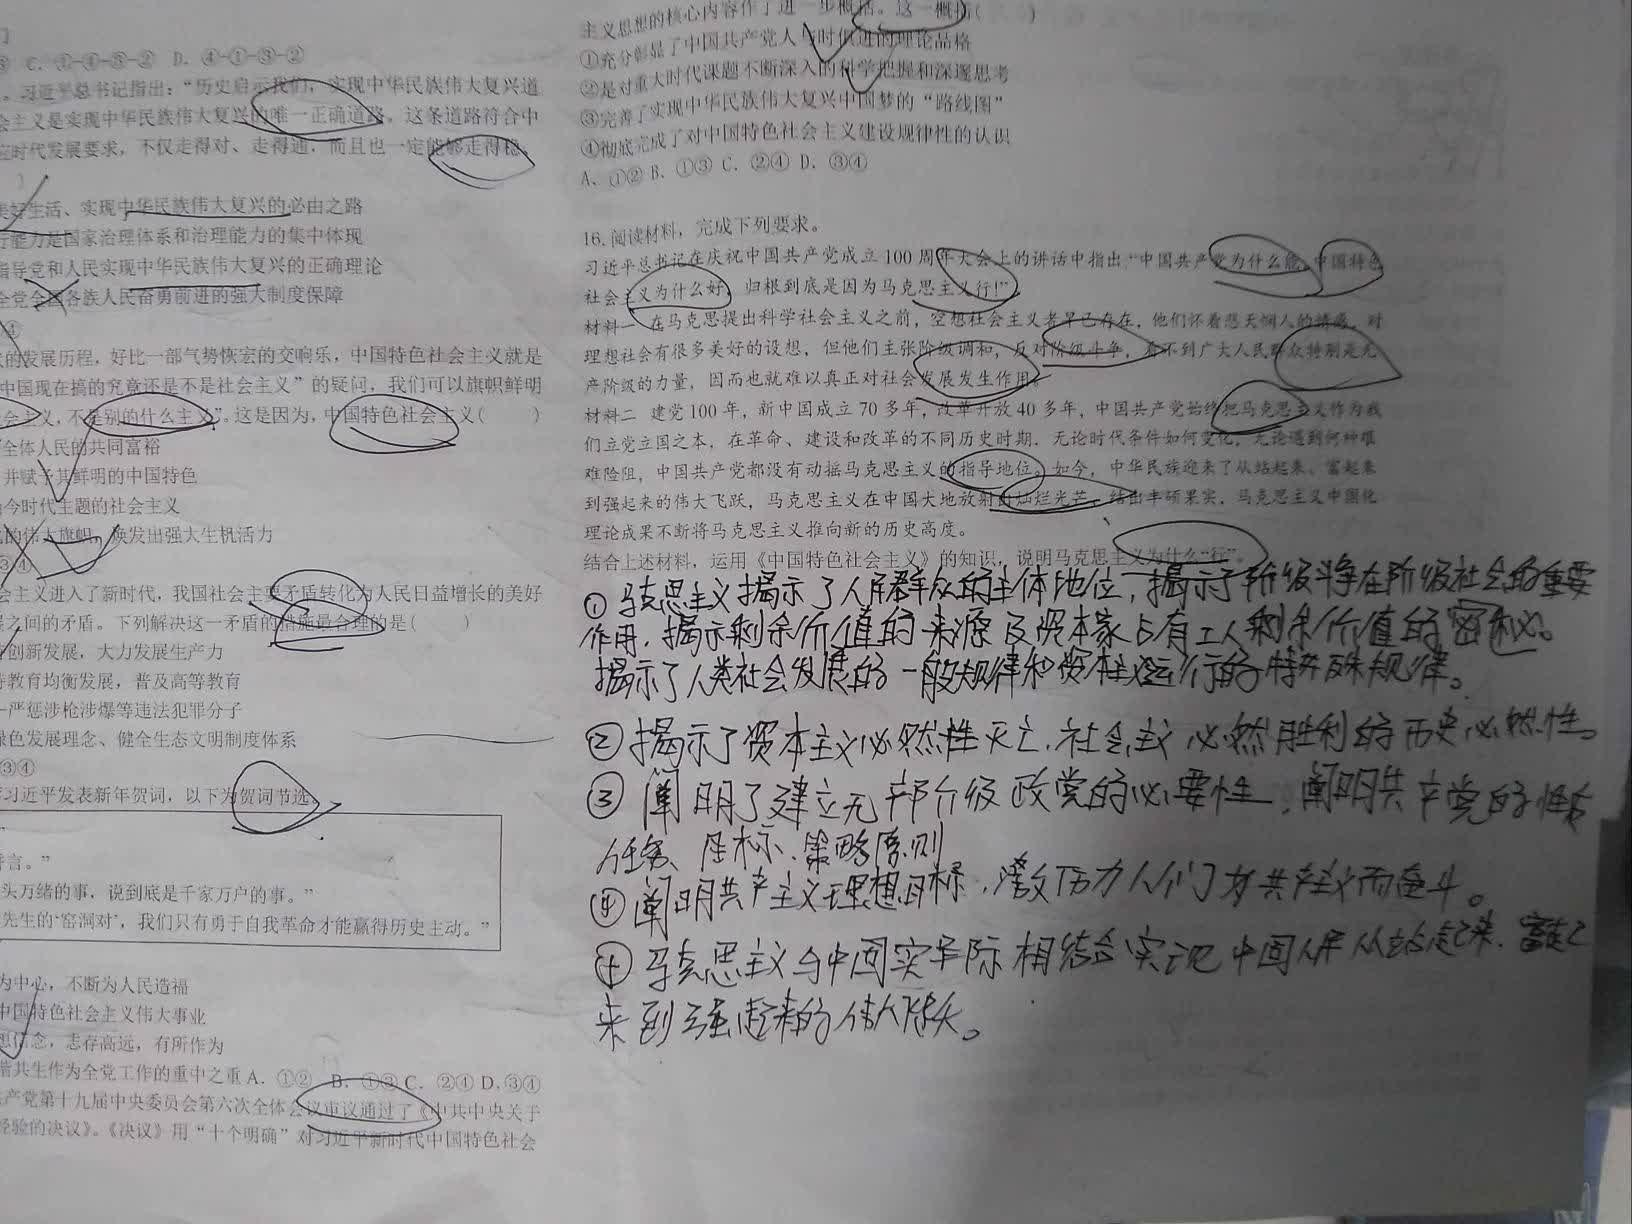 C. ①-④-③-② D. ④-①-③-②
习近平总书记指出：“历史启示我们，实现中华民族伟大复兴道
会主义是实现中华民族伟大复兴的唯一正确道路，这条道路符合中
应时代发展要求，不仅走得对、走得通，而且也一定能够走得稳、
美好生活、实现中华民族伟大复兴的必由之路
行能力是国家治理体系和治理能力的集中体现
指导党和人民实现中华民族伟大复兴的正确理论
全党全国各族人民奋勇前进的强大制度保障
④
的发展历程，好比一部气势恢宏的交响乐，中国特色社会主义就是
中国现在搞的究竟还是不是社会主义”的疑问，我们可以旗帜鲜明
会主义，不是别的什么主义”。这是因为，中国特色社会主义( )
全体人民的共同富裕
并赋予其鲜明的中国特色
今时代主题的社会主义
的伟大旗帜，焕发出强大生机活力
③④
会主义进入了新时代，我国社会主要矛盾转化为人民日益增长的美好
展之间的矛盾。下列解决这一矛盾的措施最合理的是( )
创新发展，大力发展生产力
教育均衡发展，普及高等教育
严惩涉枪涉爆等违法犯罪分子
绿色发展理念、健全生态文明制度体系
③④
习近平发表新年贺词，以下为贺词节选。
言。”
头万绪的事，说到底是千家万户的事。”
先生的‘窑洞对’，我们只有勇于自我革命才能赢得历史主动。”
为中心，不断为人民造福
中国特色社会主义伟大事业
想信念，志存高远，有所作为
谐共生作为全党工作的重中之重 A. ①② B. ①③ C. ②④ D. ③④
产党第十九届中央委员会第六次全体会议审议通过了《中共中央关于
经验的决议》。《决议》用“十个明确”对习近平新时代中国特色社会
主义思想的核心内容作了进一步概括。这一概括( )
①充分彰显了中国共产党人与时俱进的理论品格
②是对重大时代课题不断深入的科学把握和深邃思考
③完善了实现中华民族伟大复兴中国梦的“路线图”
④彻底完成了对中国特色社会主义建设规律性的认识
A. ①② B. ①③ C. ②④ D. ③④
16. 阅读材料，完成下列要求。
习近平总书记在庆祝中国共产党成立 100 周年大会上的讲话中指出“中国共产党为什么能，中国特色
社会主义为什么好，归根到底是因为马克思主义行！”
材料一 在马克思提出科学社会主义之前，空想社会主义者早已存在，他们怀着悲天悯人的情感，对
理想社会有很多美好的设想，但他们主张阶级调和，反对阶级斗争，看不到广大人民群众特别是无
产阶级的力量，因而也就难以真正对社会发展发生作用。
材料二 建党 100 年，新中国成立 70 多年，改革开放 40 多年，中国共产党始终把马克思主义作为我
们立党立国之本，在革命、建设和改革的不同历史时期，无论时代条件如何变化，无论遇到何种艰
难险阻，中国共产党都没有动摇马克思主义的指导地位。如今，中华民族迎来了从站起来、富起来
到强起来的伟大飞跃，马克思主义在中国大地放射出灿烂光芒，结出丰硕果实，马克思主义中国化
理论成果不断将马克思主义推向新的历史高度。
结合上述材料，运用《中国特色社会主义》的知识，说明马克思主义为什么“行”。
①马克思主义揭示了人民群众的主体地位，揭示了阶级斗争在阶级社会的重要
作用，揭示剩余价值的来源及资本家占有工人剩余价值的秘密。
揭示了人类社会发展的一般规律和资本主义运行的特殊规律。
②揭示了资本主义必然性灭亡，社会主义必然胜利的历史必然性。
③阐明了建立无产阶级政党的必要性，阐明共产党的性质
任务、目标、策略原则
④阐明共产主义理想目标，激励人们为共产主义而奋斗。
马克思主义与中国实际相结合实现中国人民从站起来、富起
来到强起来的伟大飞跃。